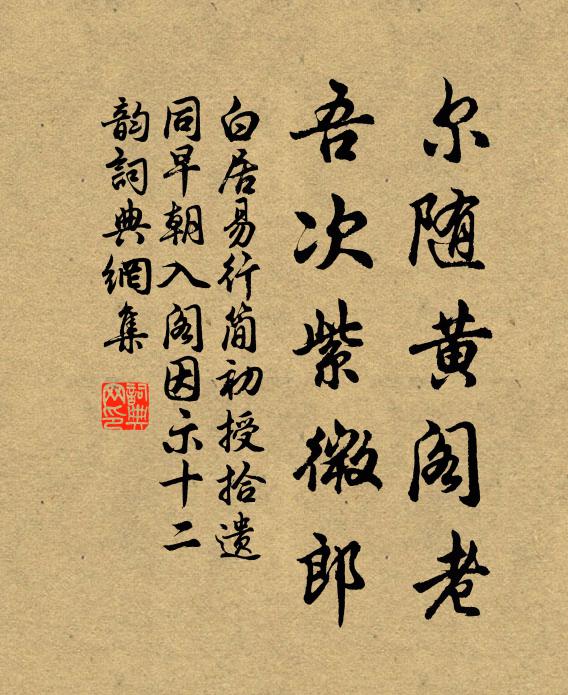 尔随黄阁老
吾次紫微郎
白居易行简初授拾遗
同早朝入阁因示十二
韵词典網集
詞典
网印